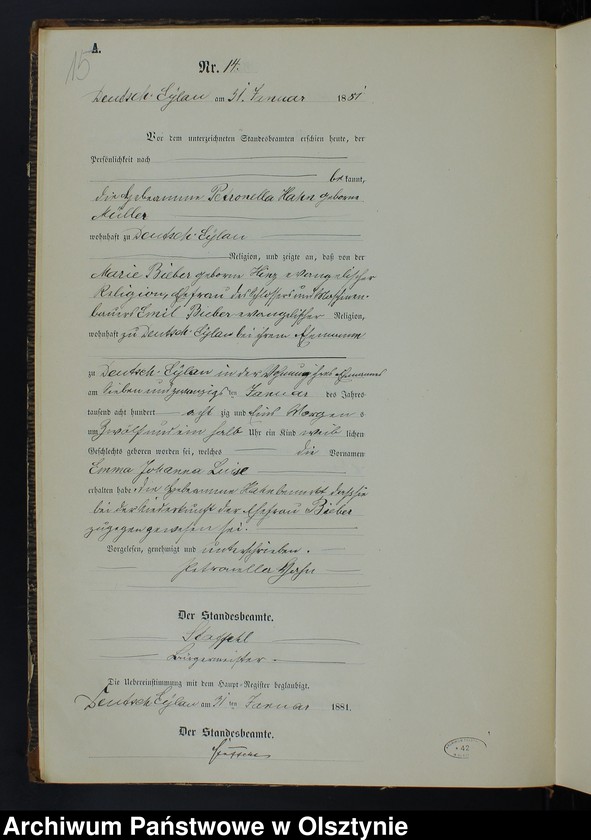 15
A.
Nr. 14.
Deutsch-Eylau am 31. Januar 1881
Vor dem unterzeichneten Standesbeamten erschien heute, der
Persönlichkeit nach
be kannt,
die Hebeamme Petronella Hahn geborne
Müller
wohnhaft zu Deutsch-Eylau
Religion, und zeigte an, daß von der
Marie Bieber geborne Hinz evangelischer
Religion, Ehefrau des Schlossers und Maschinen-
bauers Emil Bieber evangelischer Religion,
wohnhaft zu Deutsch-Eylau bei ihrem Ehemanne
zu Deutsch-Eylau in der Wohnung ihres Ehemannes
am sieben und zwanzigsten Januar des Jahres
tausend acht hundert acht zig und eins Morgens
um zwölf und ein halb Uhr ein Kind weib lichen
Geschlechts geboren worden sei, welches die Vornamen
Emma Johanna Luise
erhalten habe. die Hebeamme Hahn bemerkt daß sie
bei der Niederkunft der Ehefrau Bieber
zugegen gewesen sei.
Vorgelesen, genehmigt und unterschrieben.
Petronella Hahn
Der Standesbeamte.
Bürgermeister.
Die Uebereinstimmung mit dem Haupt-Register beglaubigt.
Deutsch Eylau am 31 ten Januar 1881.
Der Standesbeamte.
42
Archiwum Państwowe w Olsztynie